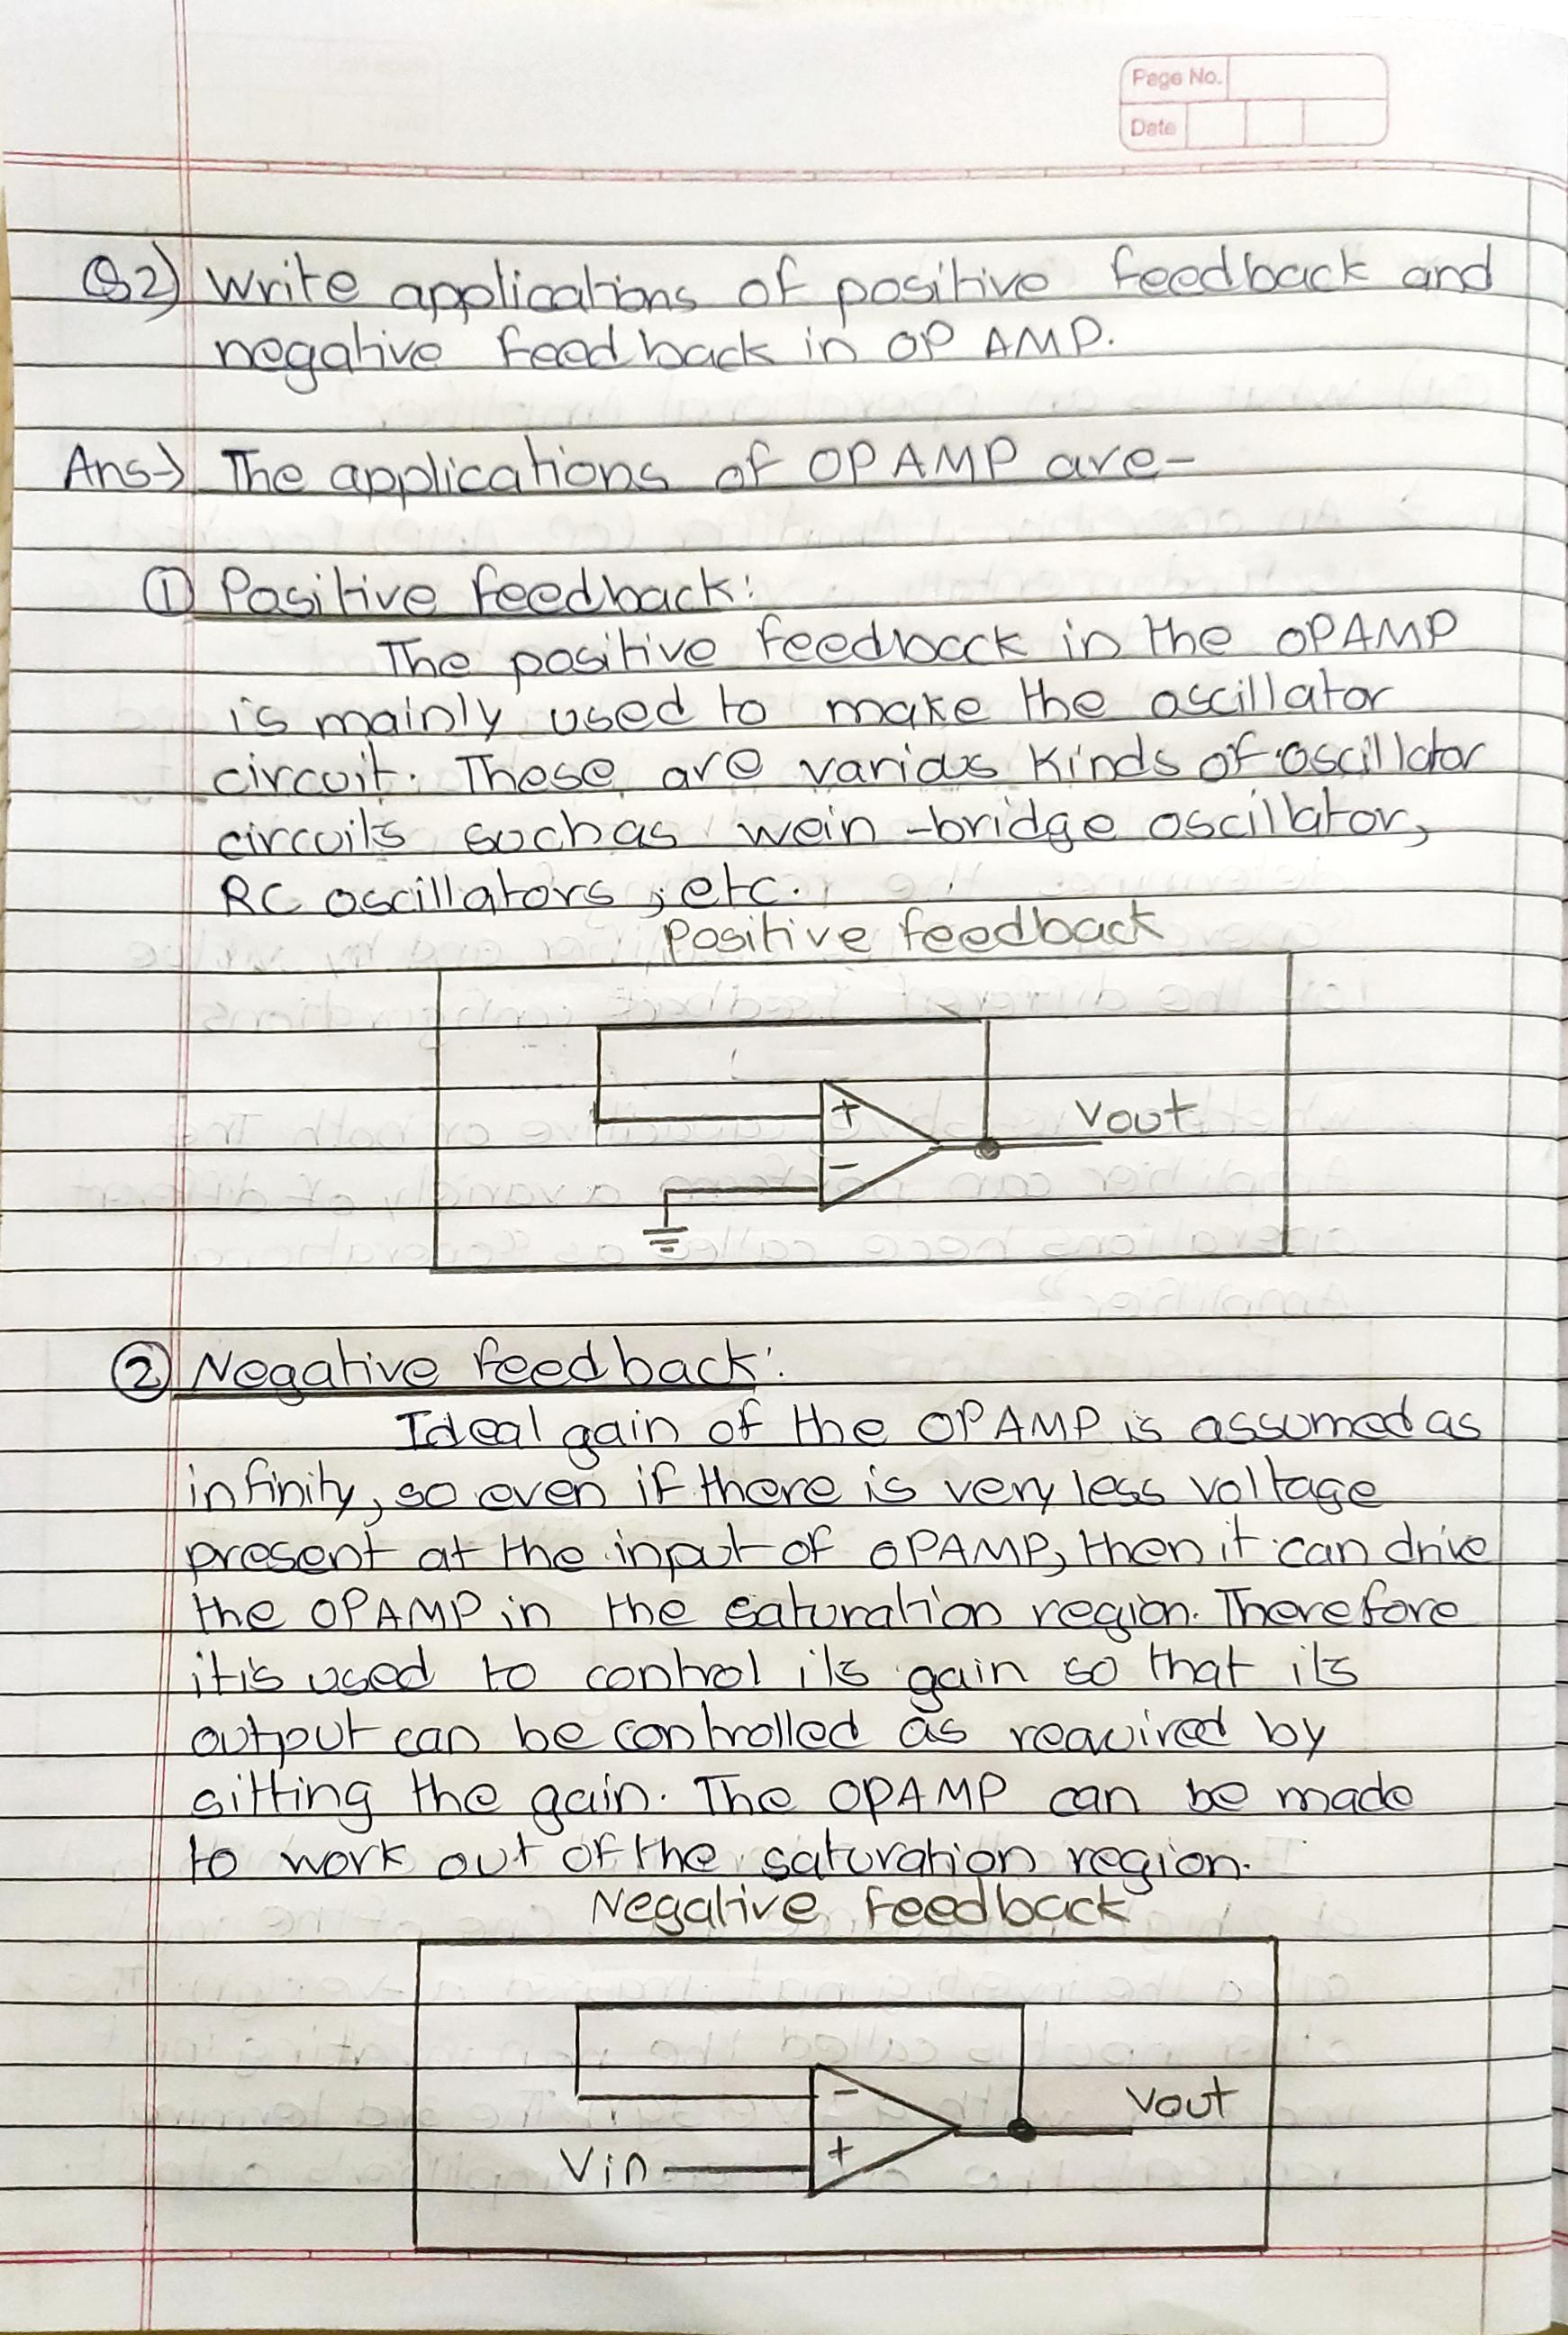 Page No.
Date
Q2) Write applications of positive feedback and
negative feedback in OP AMP.
Ans→ The applications of OPAMP are-
① Positive feedback:
The positive feedback in the OPAMP
is mainly used to make the oscillator
circuit. These are various kinds of oscillator
circuits such as wein-bridge oscillator,
RC oscillators, etc.
Positive feedback
+
Vout
-
② Negative feedback:
Ideal gain of the OPAMP is assumed as
infinity, so even if there is very less voltage
present at the input of OPAMP, then it can drive
the OPAMP in the saturation region. Therefore
it is used to control its gain so that its
output can be controlled as required by
sitting the gain. The OPAMP can be made
to work out of the saturation region.
Negative feedback
-
Vout
+
Vin